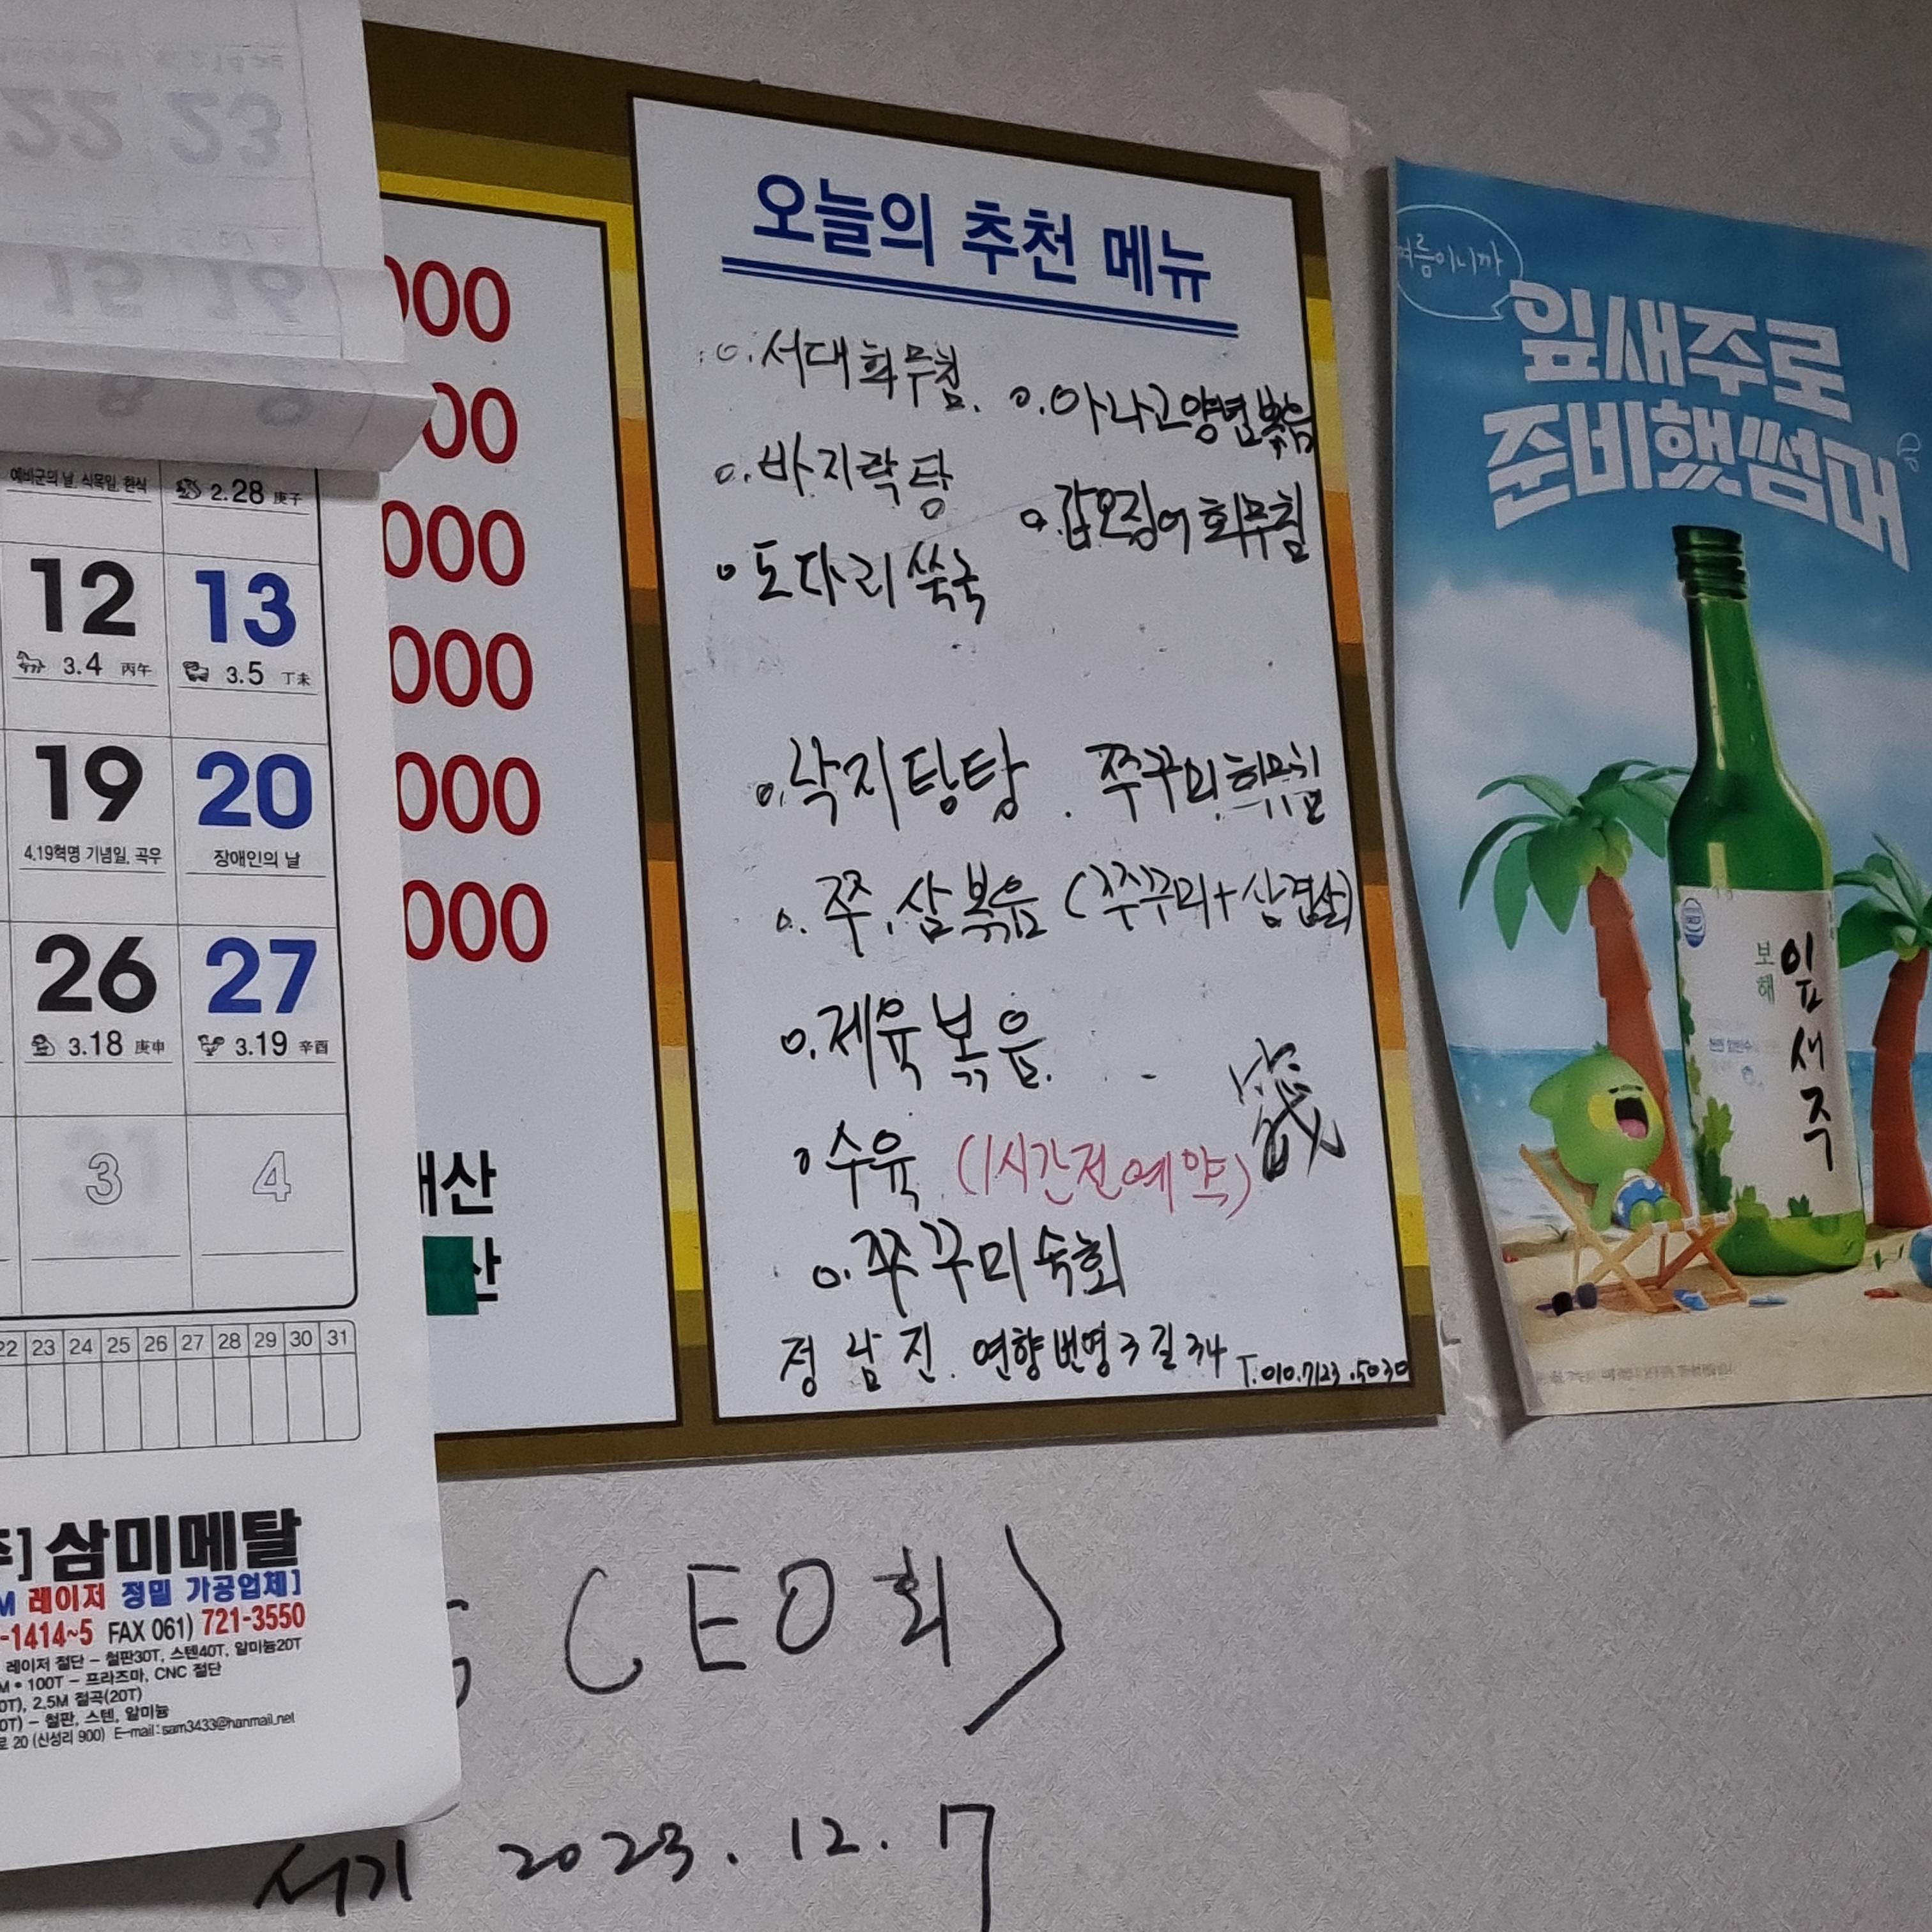 22 23
15 16
8 9
예비군의 날, 식목일, 한식 2.28 庚子
12 13
3.4 丙午 3.5 丁未
19 20
4.19혁명 기념일, 곡우 장애인의 날
26 27
3.18 庚申 3.19 辛酉
3 4
22 23 24 25 26 27 28 29 30 31
삼미메탈
M 레이저 정밀 가공업체]
-1414~5 FAX 061) 721-3550
레이저 절단 - 철판30T, 스텐40T, 알미늄20T
M • 100T - 프라즈마, CNC 절단
0T), 2.5M 절곡(20T)
0T) - 철판, 스텐, 알미늄
로 20 (신성리 900) E-mail : sam3433@hanmail.net
000
00
000
000
000
000
산
산
오늘의 추천 메뉴
o. 서대회무침. o. 아나고양념볶음
o. 바지락탕
o. 갑오징어회무침
o 도다리쑥국
o. 낙지탕탕 . 쭈꾸미회무침
o. 쭈.삼볶음 (쭈꾸미+삼겹살)
o. 제육볶음.
o 수육 (1시간전예약)
o. 쭈꾸미숙회
정남진. 연향번영3길34 T.010.7123.5030
여름이니까
잎새주로
준비햇썸머
보해
잎새주
(CEO회)
서기 2023.12.7